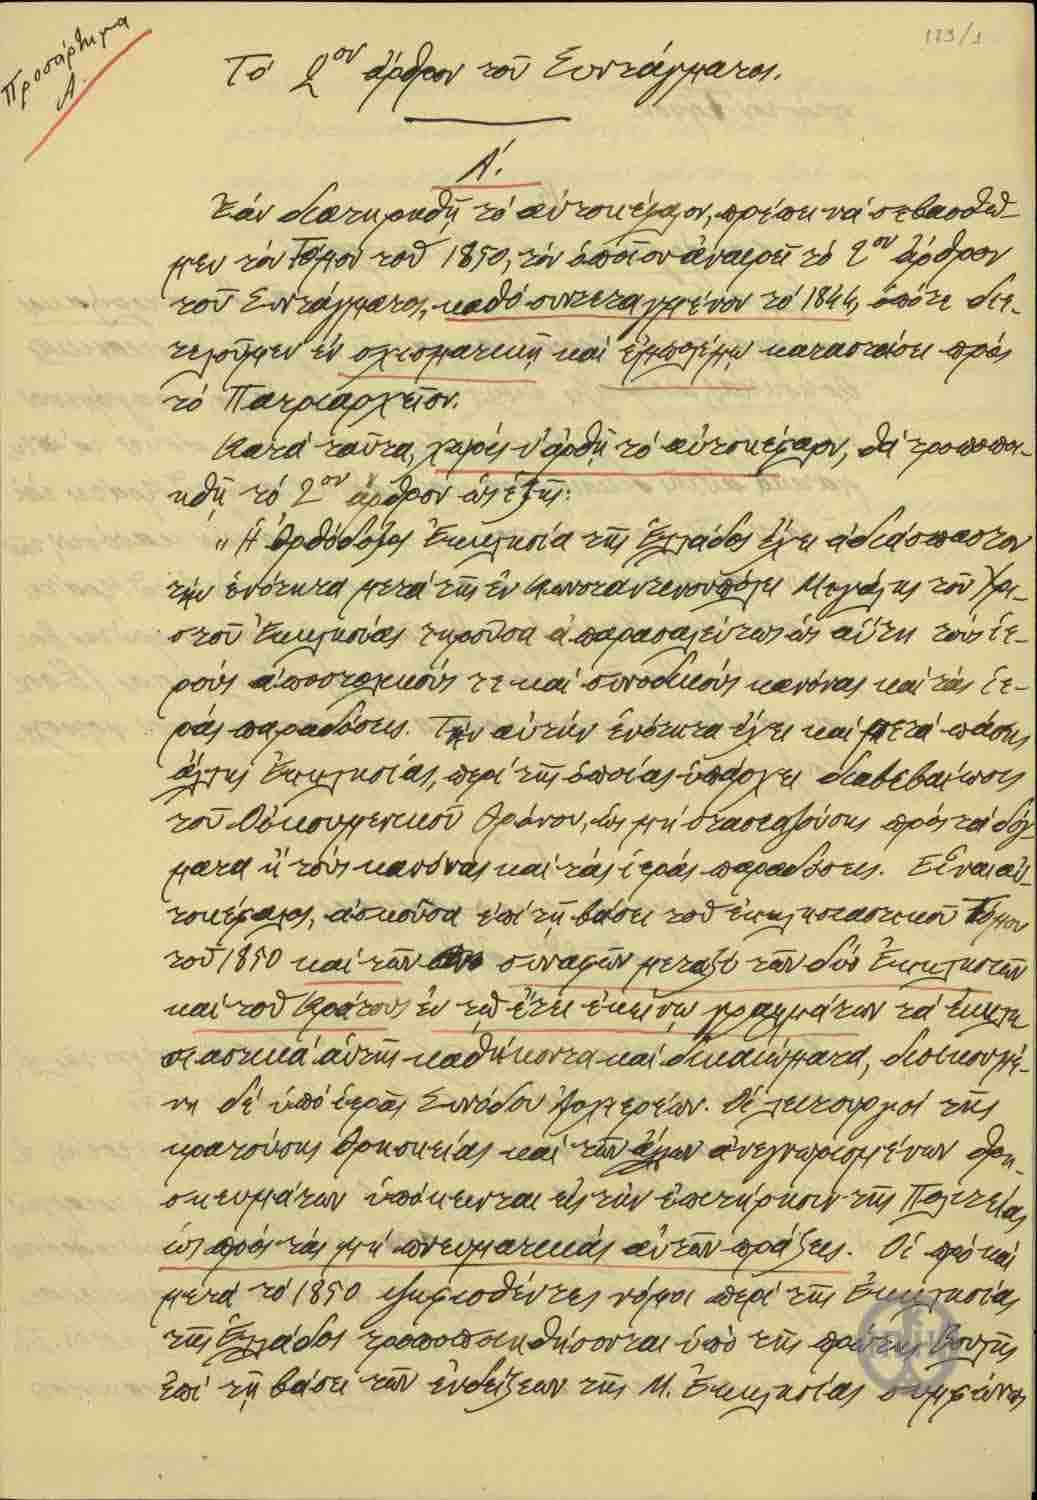 173/1
Προσάρτημα
Α.
Τὸ 2ον ἄρθρον τοῦ Συντάγματος.
Α΄.
Ἐὰν διατηρηθῇ τὸ αὐτοκέφαλον, πρέπει νὰ σεβασθῶ-
μεν τὸν Τόμον τοῦ 1850, τὸν ὁποῖον ἀναιρεῖ τὸ 2ον ἄρθρον
τοῦ Συντάγματος, καθὸ συντεταγμένον τὸ 1844, ὁπότε διε-
τελοῦμεν ἐν σχισματικῇ καὶ ἐμπολέμῳ καταστάσει πρὸς
τὸ Πατριαρχεῖον.
Κατὰ ταῦτα, χωρὶς ν' ἀρθῇ τὸ αὐτοκέφαλον, θὰ τροποποι-
ηθῇ τὸ 2ον ἄρθρον ὡς ἑξῆς:
„Ἡ Ὀρθόδοξος Ἐκκλησία τῆς Ἑλλάδος ἔχει ἀδιάσπαστον
τὴν ἑνότητα μετὰ τῆς ἐν Κωνσταντινουπόλει Μεγάλης τοῦ Χρι-
στοῦ Ἐκκλησίας τηροῦσα ἀπαρασαλεύτως ὡς αὕτη τοὺς ἱε-
ροὺς ἀποστολικούς τε καὶ συνοδικοὺς κανόνας καὶ τὰς ἱε-
ρὰς παραδόσεις. Τὴν αὐτὴν ἑνότητα ἔχει καὶ μετὰ πάσης
ἄλλης Ἐκκλησίας, περὶ τῆς ὁποίας ὑπάρχει διαβεβαίωσις
τοῦ Οἰκουμενικοῦ Θρόνου, ὡς μὴ στασιαζούσης πρὸς τὰ δόγ-
ματα ἢ τοὺς κανόνας καὶ τὰς ἱερὰς παραδόσεις. Εἶναι αὐ-
τοκέφαλος, ἀσκοῦσα ἐπὶ τῇ βάσει τοῦ ἐκκλησιαστικοῦ Τόμου
τοῦ 1850 καὶ τῶν συναφῶν μεταξὺ τῶν δύο Ἐκκλησιῶν
καὶ τοῦ Κράτους ἐν τῷ ἔτει ἐκείνῳ γραμμάτων τὰ ἐκκλη
σιαστικὰ αὑτῆς καθήκοντα καὶ δικαιώματα, διοικουμέ-
νη δὲ ὑπὸ ἱερᾶς Συνόδου Ἀρχιερέων. Οἱ λειτουργοὶ τῆς
κρατούσης θρησκείας καὶ τῶν ἄλλων ἀνεγνωρισμένων θρη-
σκευμάτων ὑπόκεινται εἰς τὴν ἐπιτήρησιν τῆς Πολιτείας
ὡς πρὸς τὰς μὴ πνευματικὰς αὐτῶν πράξεις. Οἱ πρὸ καὶ
μετὰ τὸ 1850 ψηφισθέντες νόμοι περὶ τῆς Ἐκκλησίας
τῆς Ἑλλάδος τροποποιηθήσονται ὑπὸ τῆς πρώτης Βουλῆς
ἐπὶ τῇ βάσει τῶν ἐνδείξεων τῆς Μ. Ἐκκλησίας συμφώνως